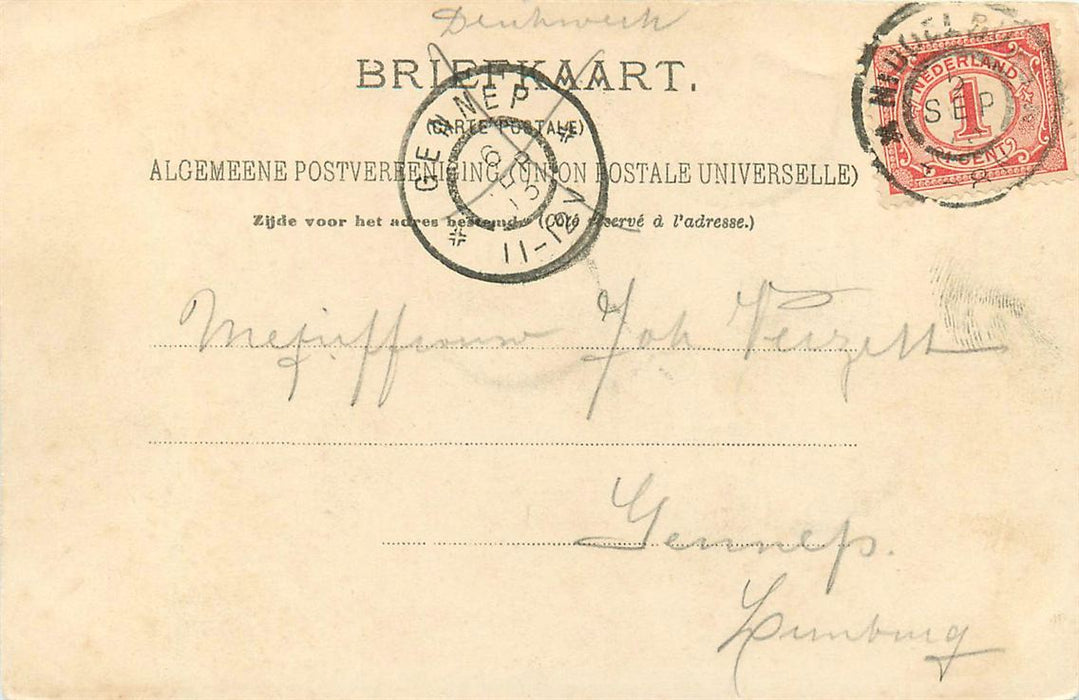 Drukwerk
BRIEFKAART.
(CARTE POSTALE)
ALGEMEENE POSTVEREENIGING (UNION POSTALE UNIVERSELLE)
Zijde voor het adres bestemd. (Côté réservé à l'adresse.)
NEDERLAND
1
CENT
MIDDELBU
2
SEP
GENNEP
6
SEP
03
11-12V
Mejuffrouw Joh Verzett
Gennep.
Limburg